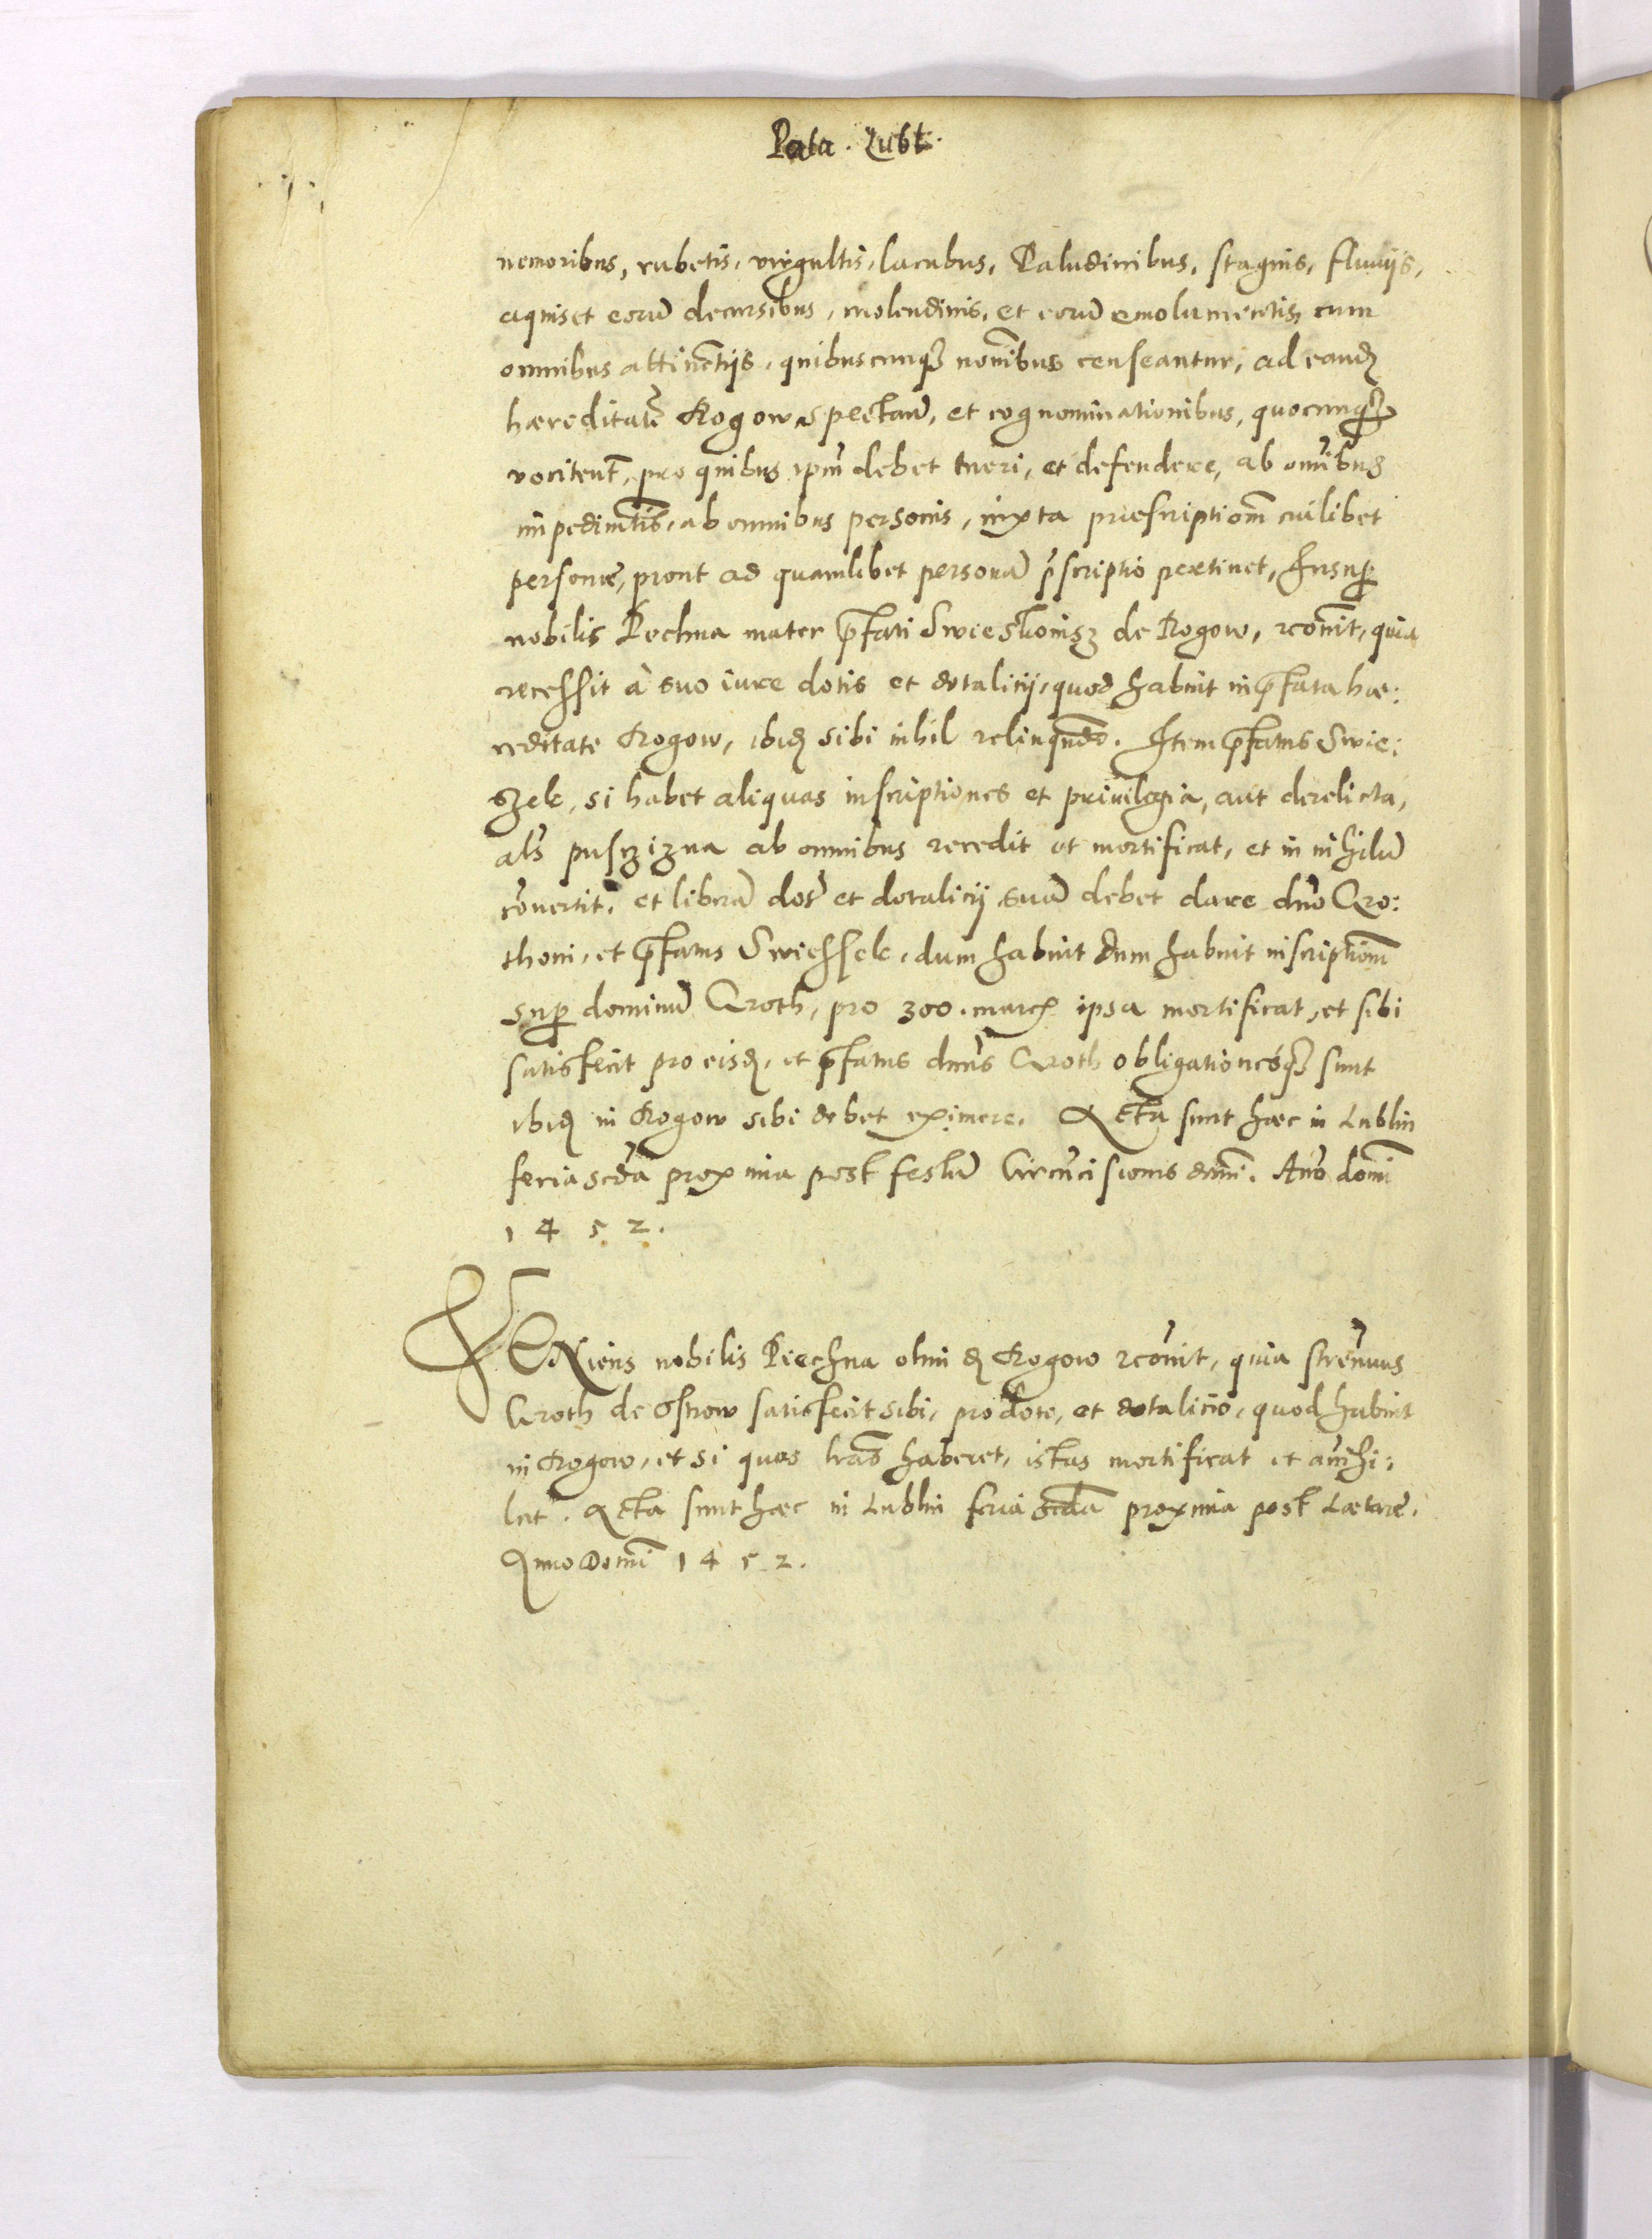 Pala. Lubl.
nemoribus, rubetis, virgultis, lacubus, Paludinibus, stagnis, fluviis,
aquis et eorū decursibus, molendinis, et eorū emolumentis, cum
omnibus attinētijs, quibuscunqȝ nom̄ibus censeantur, ad eandȩ
hæreditatē Rogow spectan̄, et cognominationibus, quocunqȝ
vocitent̄, pro quibus ip̄m debet tueri, et defendere, ab om̄ibus
impedimt̄is, ab omnibus personis, iuxta præscriptiom̄ cuilibet
personæ, prout ad quamlibet personā p̄scriptio pertinet, Insup̱
nobilis Pechna mater p̄fati Swiesskonisz de Rogow, recon̄it, quia
recessit à suo iure dotis et dotalicij, quod habuit in p̄fata hæ:
reditate Rogow, ibidȩ sibi nihil relinquēdo. Item p̄fatus Swie:
szek, si habet aliquas inscriptiones et privilegia, aut derelicta,
al̄s pusczizna ab omnibus recedit et mortificat, et in nihilū
cōvertit, et liberā dotē et dotalicij suā debet dare dn̄o Croth:
thoni, et p̄fatus Swiessek, dum habuit dum habuit inscriptiom̄
sup̱ dominū Croth, pro 300. marcȩ ipsa mortificat, et sibi
satisfecit pro eisdȩ, et p̄fatus dn̄us Croth obligationes qȝ sunt
ibidȩ in Rogow sibi debet eximere. Acta sunt hæc in Lublin
feria scd̄a proxima post festū Circūcisionis dnī. Ano domi
1 4 5 2.
VENiens nobilis Piechna olim dȩ Rogow recon̄it, quia strēnuus
Croth de Ostrow satisfecit sibi, pro dote, et dotalicio, quod habuit
in Rogow, et si quas lr̄as haberet, istas mortificat et an̄ihi:
lat. Acta sunt hæc in Lublin feria scd̄a proxima post Lætare.
Anno Domi 1 4 5 2.